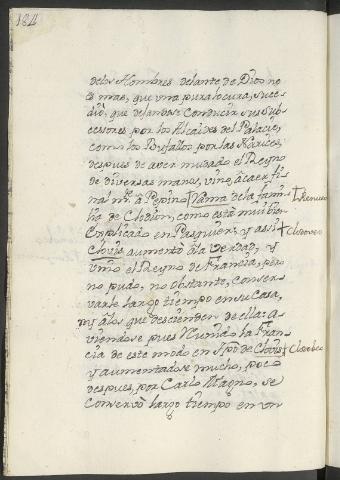 184
delos Hombres delante de Dios no
es mas, que una pura locura, suce-
dió, que dejandose conducir sus sub-
cessores por los Alcaides del Palacio,
como los Bufalos, por las Narices,
despues de aver mudado el Reyno
de diversas manos, vino, à caer fi-
nal m.te à Pepino Rama de la fami-
lia de Clodion, como está mui bien
explicado en Pasquier; y assi
Clovis aumentò à la verdad, y
uniò el Reyno de Francia, pero
no pudo, no obstante, conser-
varle largo tiempo en su Casa,
ny à los que descienden de ella: a-
viendose pues Reunido la Fran-
cia de este modo en tpõ de Clovis
y aumentadose mucho, poco
despues, por Carlo Magno, se
conservò largo tiempo en un